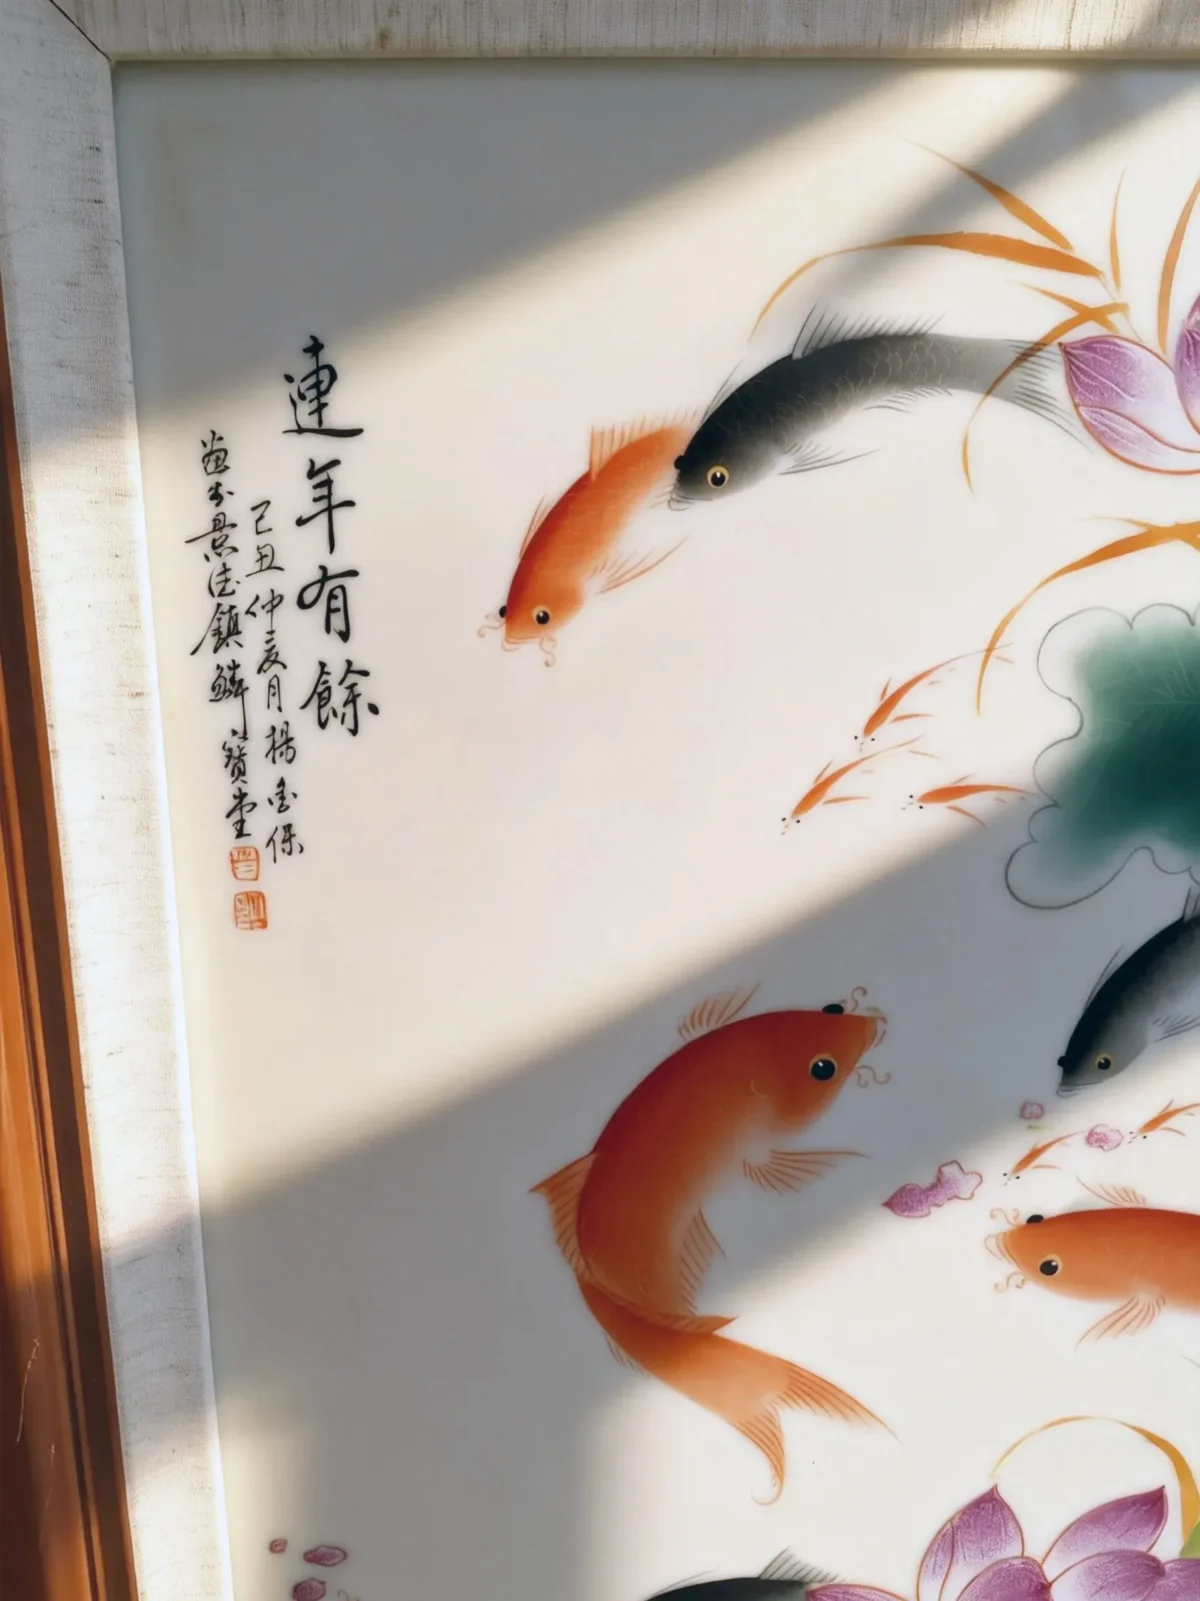 連年有餘
己丑仲夏月楊金保
畫於景德鎮鱗寶堂